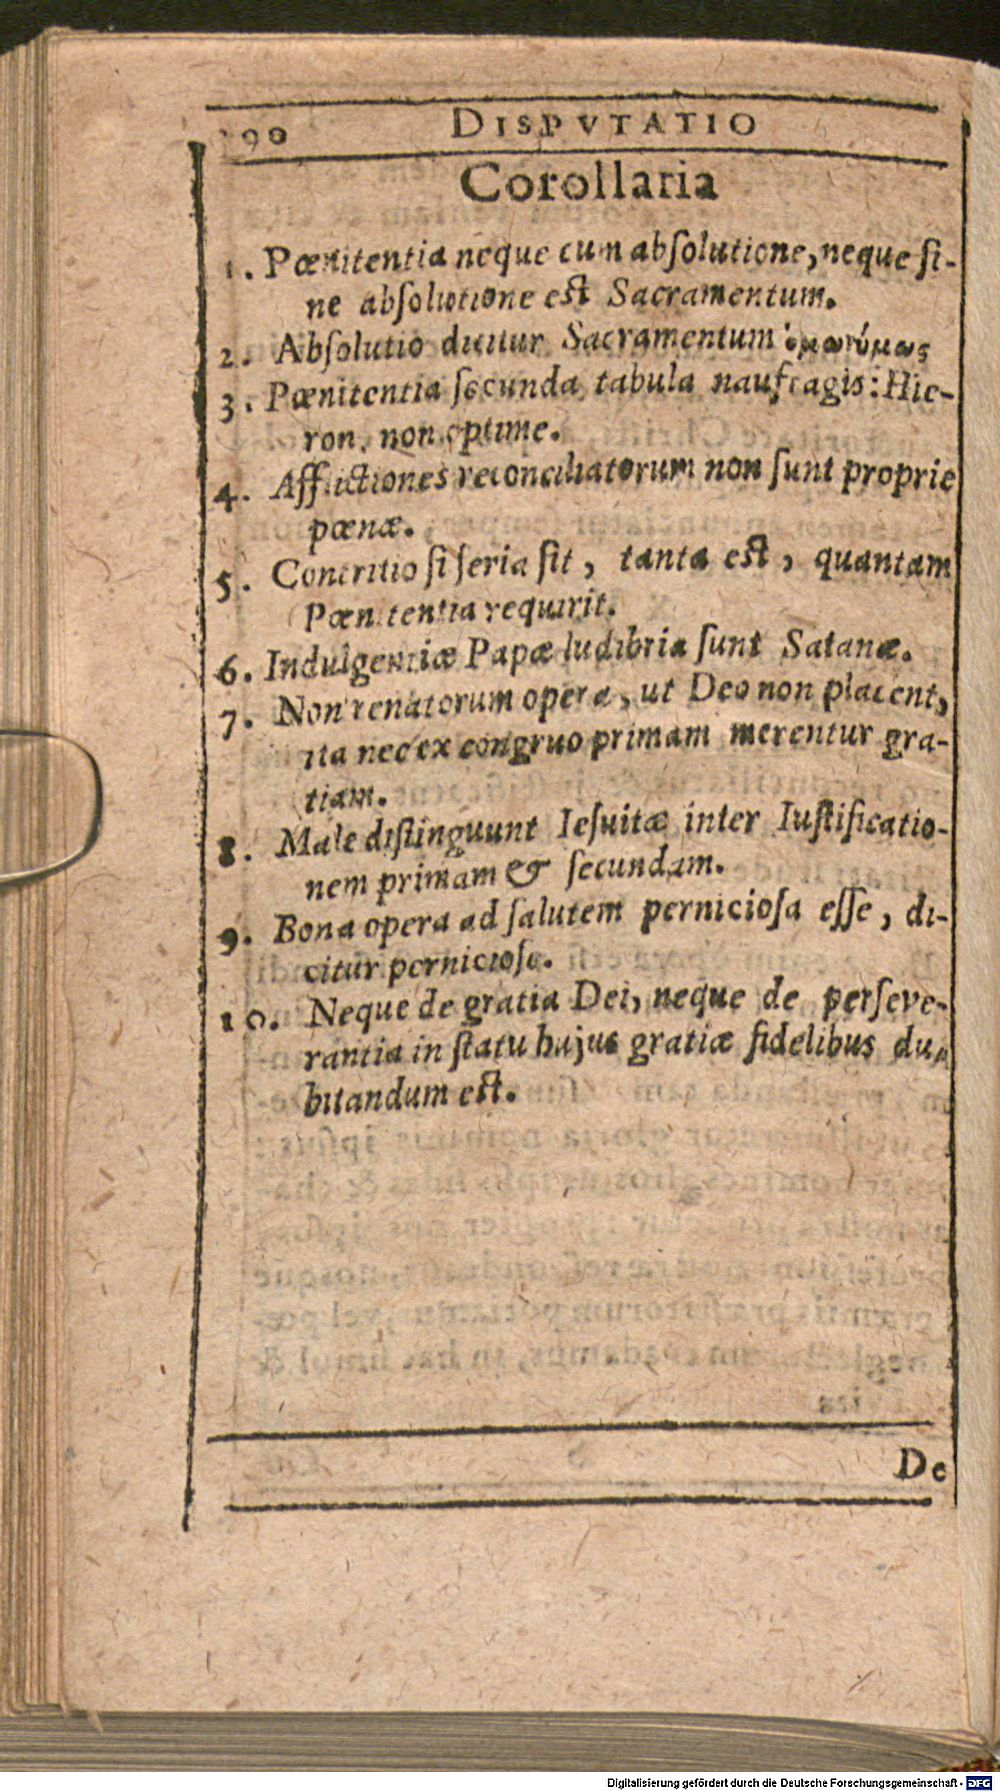 190 DISPVTATIO
Corollaria
1. Pœnitentia neque cum abſolutione, neque ſi-
ne abſolutione est Sacramentum.
2. Abſolutio dicitur Sacramentum ὁμωνύμως
3. Pœnitentia ſecunda tabula naufragis: Hie-
ron. non optime.
4. Afflictiones reconciliatorum non ſunt proprie
pœnæ.
5. Contritio ſi ſeria ſit, tanta est, quantam
Pœnitentia requirit.
6. Indulgentiæ Papæ ludibria ſunt Satanæ.
7. Non renatorum opera, ut Deo non placent,
ita nec ex congruo primam merentur gra-
tiam.
8. Male diſtinguunt Ieſuitæ inter Iuſtificatio-
nem primam & ſecundam.
9. Bona opera ad ſalutem pernicioſa eſſe, di-
citur pernicioſe.
10. Neque de gratia Dei, neque de perſeve-
rantia in ſtatu hujus gratiæ fidelibus du-
bitandum est.
De
Digitalisierung gefördert durch die Deutsche Forschungsgemeinschaft - DFG